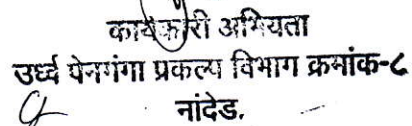 कार्यकारी अभियंता
उर्ध्व पेनगंगा प्रकल्प विभाग क्रमांक-८
नांदेड.